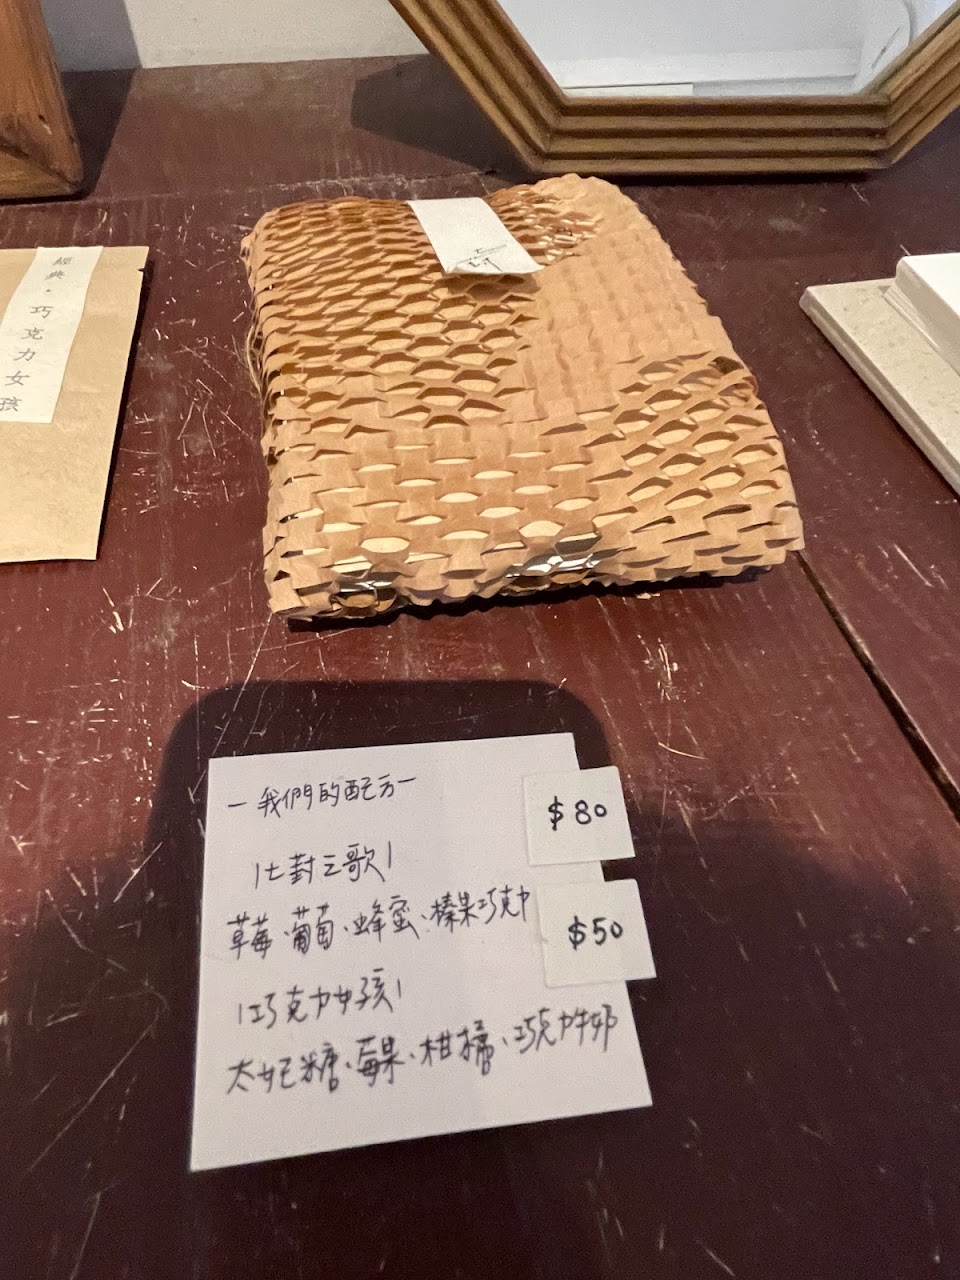 經典・巧克力女孩
— 我們的配方 —
|七封三歌|
$80
草莓、葡萄、蜂蜜、榛果巧克力
$50
|巧克力女孩|
太妃糖、莓果、柑橘、巧克力牛奶